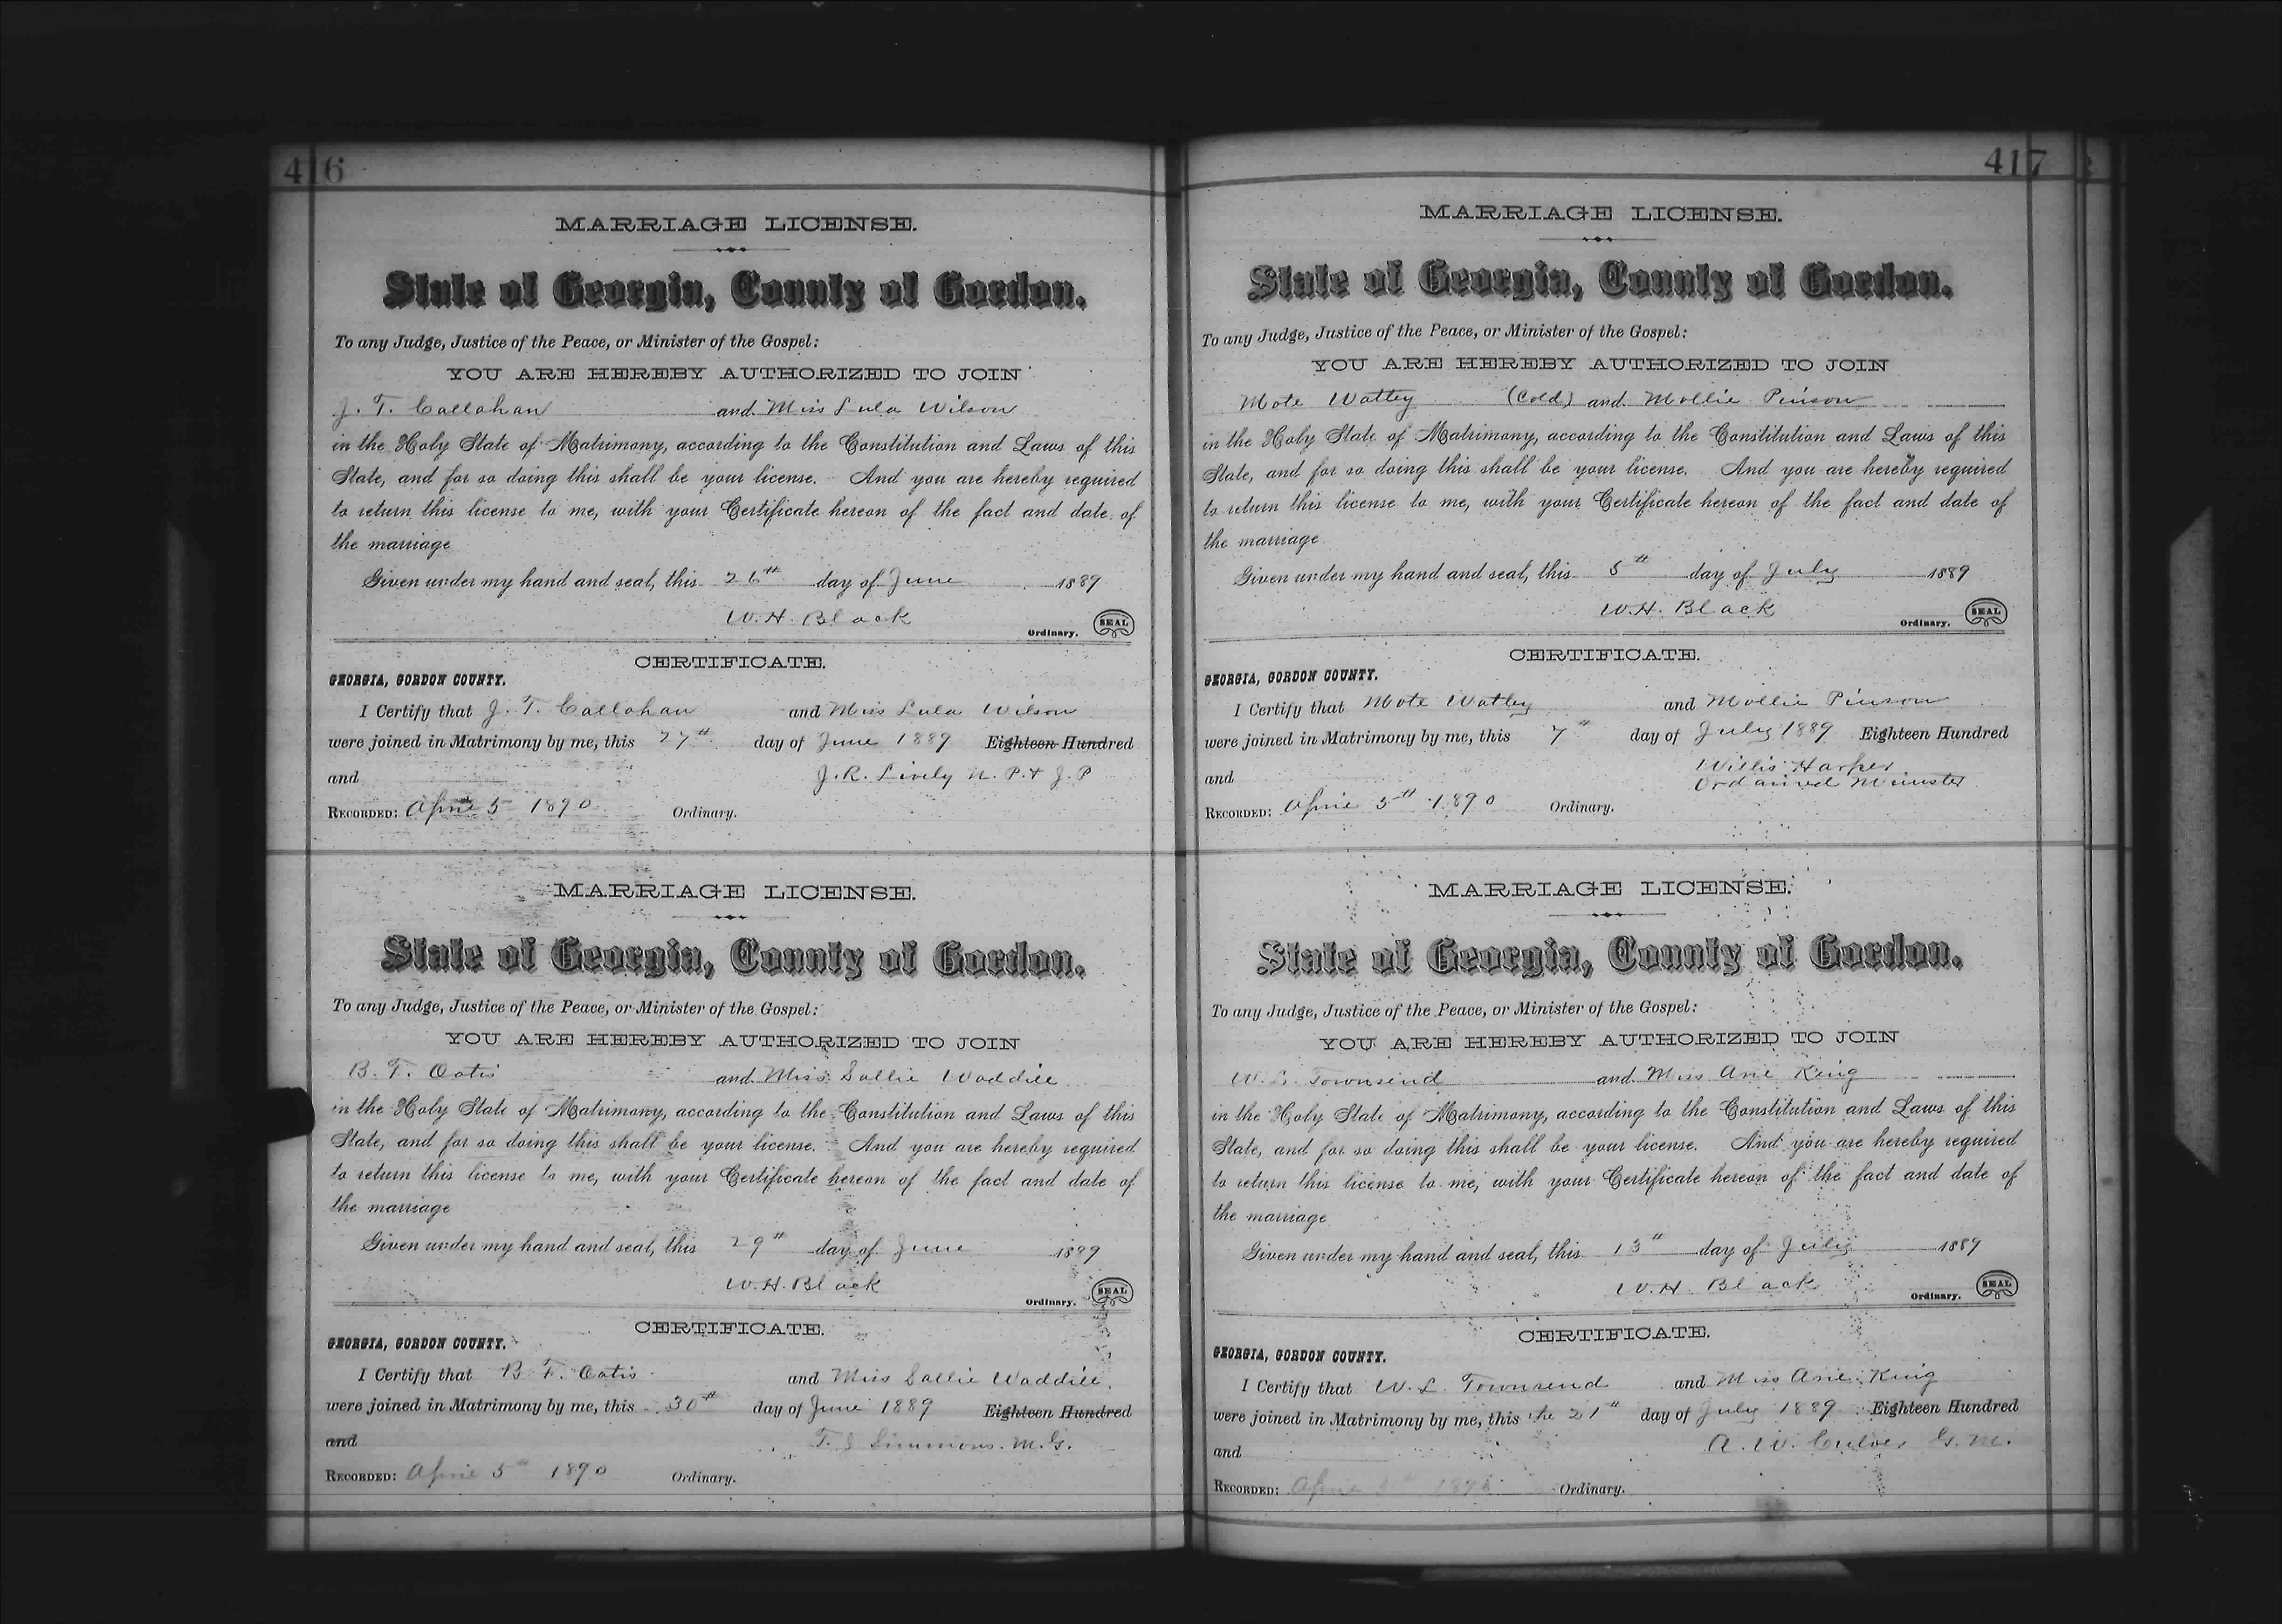 416
MARRIAGE LICENSE.
State of Georgia, County of Gordon.
To any Judge, Justice of the Peace, or Minister of the Gospel:
YOU ARE HEREBY AUTHORIZED TO JOIN
J. T. Callahan and Miss Lula Wilson
in the Holy State of Matrimony, according to the Constitution and Laws of this
State, and for so doing this shall be your license. And you are hereby required
to return this license to me, with your Certificate hereon of the fact and date of
the marriage
Given under my hand and seal, this 26th day of June 1889
W. H. Black
Ordinary. SEAL
CERTIFICATE.
GEORGIA, GORDON COUNTY.
I Certify that J. T. Callahan and Miss Lula Wilson
were joined in Matrimony by me, this 27th day of June 1889 Eighteen Hundred
and J. R. Lively N. P. & J. P
RECORDED: April 5 1890 Ordinary.
MARRIAGE LICENSE.
State of Georgia, County of Gordon.
To any Judge, Justice of the Peace, or Minister of the Gospel:
YOU ARE HEREBY AUTHORIZED TO JOIN
B. F. Oatis and Miss Sallie Waddill
in the Holy State of Matrimony, according to the Constitution and Laws of this
State, and for so doing this shall be your license. And you are hereby required
to return this license to me, with your Certificate hereon of the fact and date of
the marriage
Given under my hand and seal, this 29th day of June 1889
W. H. Black
Ordinary. SEAL
CERTIFICATE.
GEORGIA, GORDON COUNTY.
I Certify that B. F. Oatis and Miss Sallie Waddill
were joined in Matrimony by me, this 30th day of June 1889 Eighteen Hundred
and T. J. Simmons. M. G.
RECORDED: April 5th 1890 Ordinary.
417
MARRIAGE LICENSE.
State of Georgia, County of Gordon.
To any Judge, Justice of the Peace, or Minister of the Gospel:
YOU ARE HEREBY AUTHORIZED TO JOIN
Mote Watley (Cold) and Mollie Pinson
in the Holy State of Matrimony, according to the Constitution and Laws of this
State, and for so doing this shall be your license. And you are hereby required
to return this license to me, with your Certificate hereon of the fact and date of
the marriage
Given under my hand and seal, this 5th day of July 1889
W. H. Black
Ordinary. SEAL
CERTIFICATE.
GEORGIA, GORDON COUNTY.
I Certify that Mote Watley and Mollie Pinson
were joined in Matrimony by me, this 7th day of July 1889 Eighteen Hundred
Willis Harper
and Ordained Minister
RECORDED: April 5th 1890 Ordinary.
MARRIAGE LICENSE.
State of Georgia, County of Gordon.
To any Judge, Justice of the Peace, or Minister of the Gospel:
YOU ARE HEREBY AUTHORIZED TO JOIN
W. L. Townsend and Miss Arie King
in the Holy State of Matrimony, according to the Constitution and Laws of this
State, and for so doing this shall be your license. And you are hereby required
to return this license to me, with your Certificate hereon of the fact and date of
the marriage
Given under my hand and seal, this 13th day of July 1889
W. H. Black
Ordinary. SEAL
CERTIFICATE.
GEORGIA, GORDON COUNTY.
I Certify that W. L. Townsend and Miss Arie King
were joined in Matrimony by me, this the 21st day of July 1889 Eighteen Hundred
and A. W. Culver G. M.
RECORDED: April 5 1890 Ordinary.